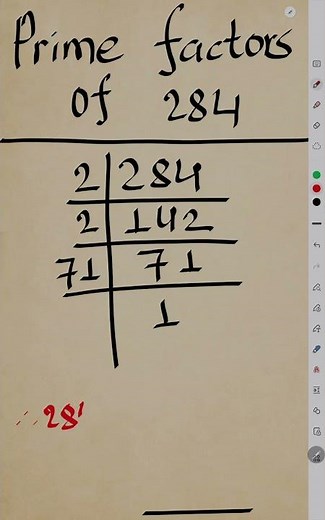 Prime factors
of 284
2 284
2 142
71 71
1
∴ 28